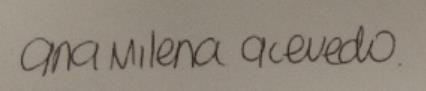 ana Milena acevedo.